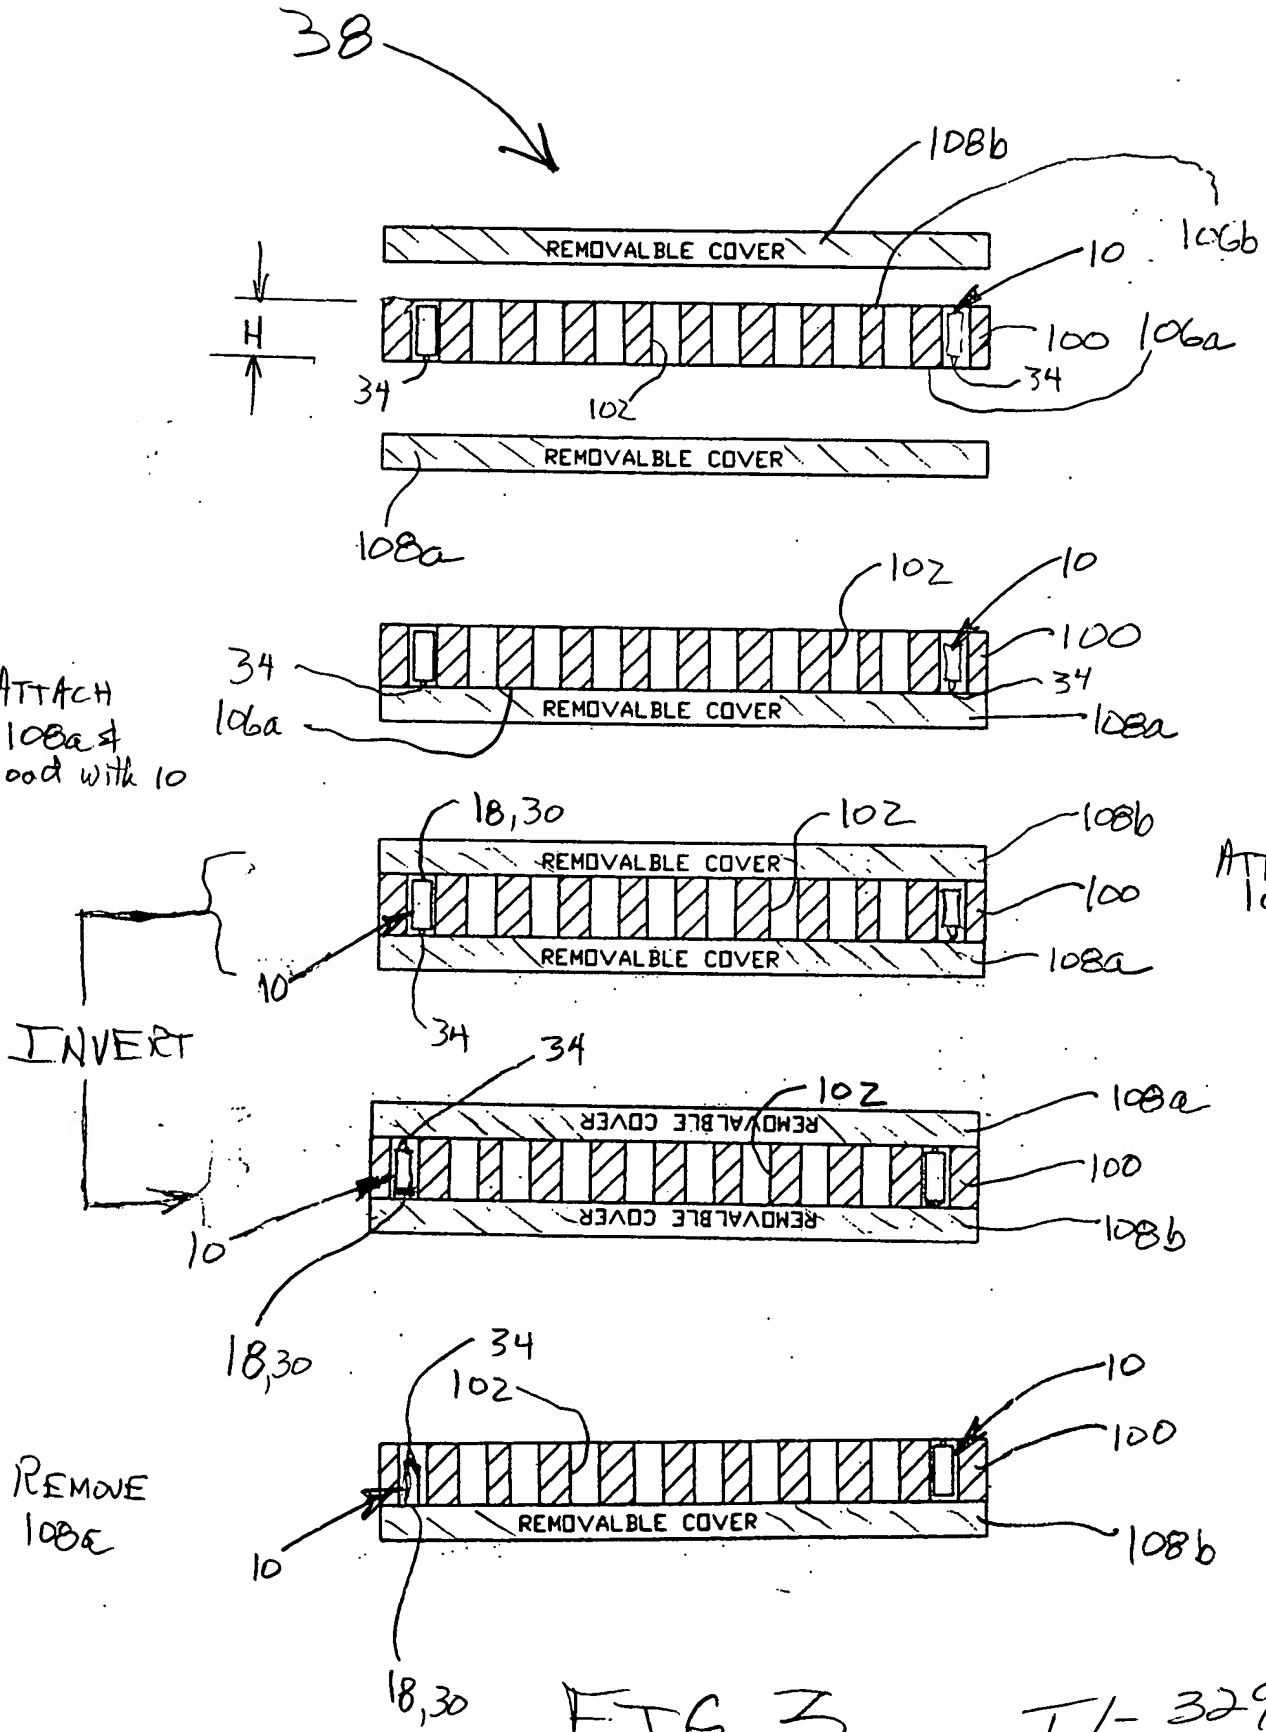 38
108b
106b
REMOVALBLE COVER
10
H
100 106a
34
102
34
REMOVALBLE COVER
108a
102
10
100
34
34
ATTACH
108a &
106a
REMOVALBLE COVER
108a
with 10
18,30
102
108b
REMOVALBLE COVER
100
REMOVALBLE COVER
108a
10
34
INVERT
34
102
108a
REMOVALBLE COVER
100
REMOVALBLE COVER
108b
10
18,30
34
102
10
100
REMOVE
108a
REMOVALBLE COVER
108b
10
18,30
FIG 3